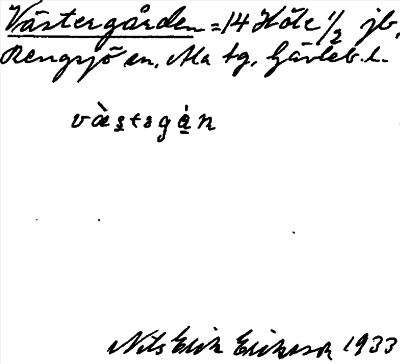 Västergården = 14 Höle 1/2 jb,
Rengsjö sn, Ala tg, Gävleb. l.
vàstsgán
Nils Erik Eriksson 1933